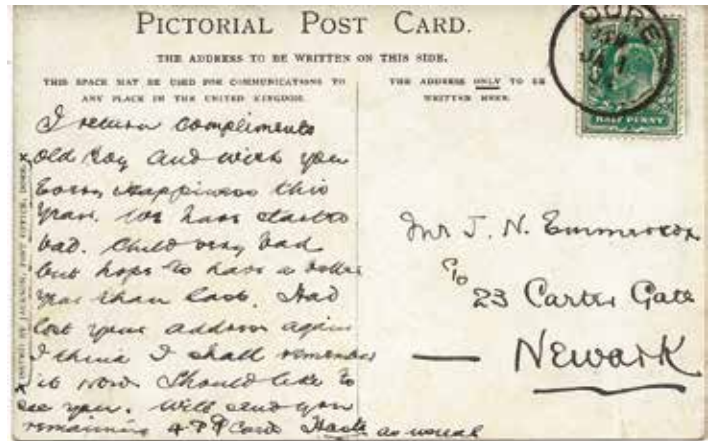 PICTORIAL POST CARD.
THE ADDRESS TO BE WRITTEN ON THIS SIDE.
THIS SPACE MAY BE USED FOR COMMUNICATIONS TO
ANY PLACE IN THE UNITED KINGDOM.
THE ADDRESS ONLY TO BE
WRITTEN HERE.
DORE
JA 1
HALF PENNY
ISSUED BY JACKSON, POST OFFICE, DORE.
I return compliments
old boy and wish you
every Happiness this
year. We have started
bad. Child very bad
but hope to have a better
year than last. Had
lost your address again
I think I shall remember
it now. Should like to
see you. Will send you
remaining 4 P P Cards Haste as usual
Mr J. N. Emmerson
c/o
23 Carter Gate
Newark